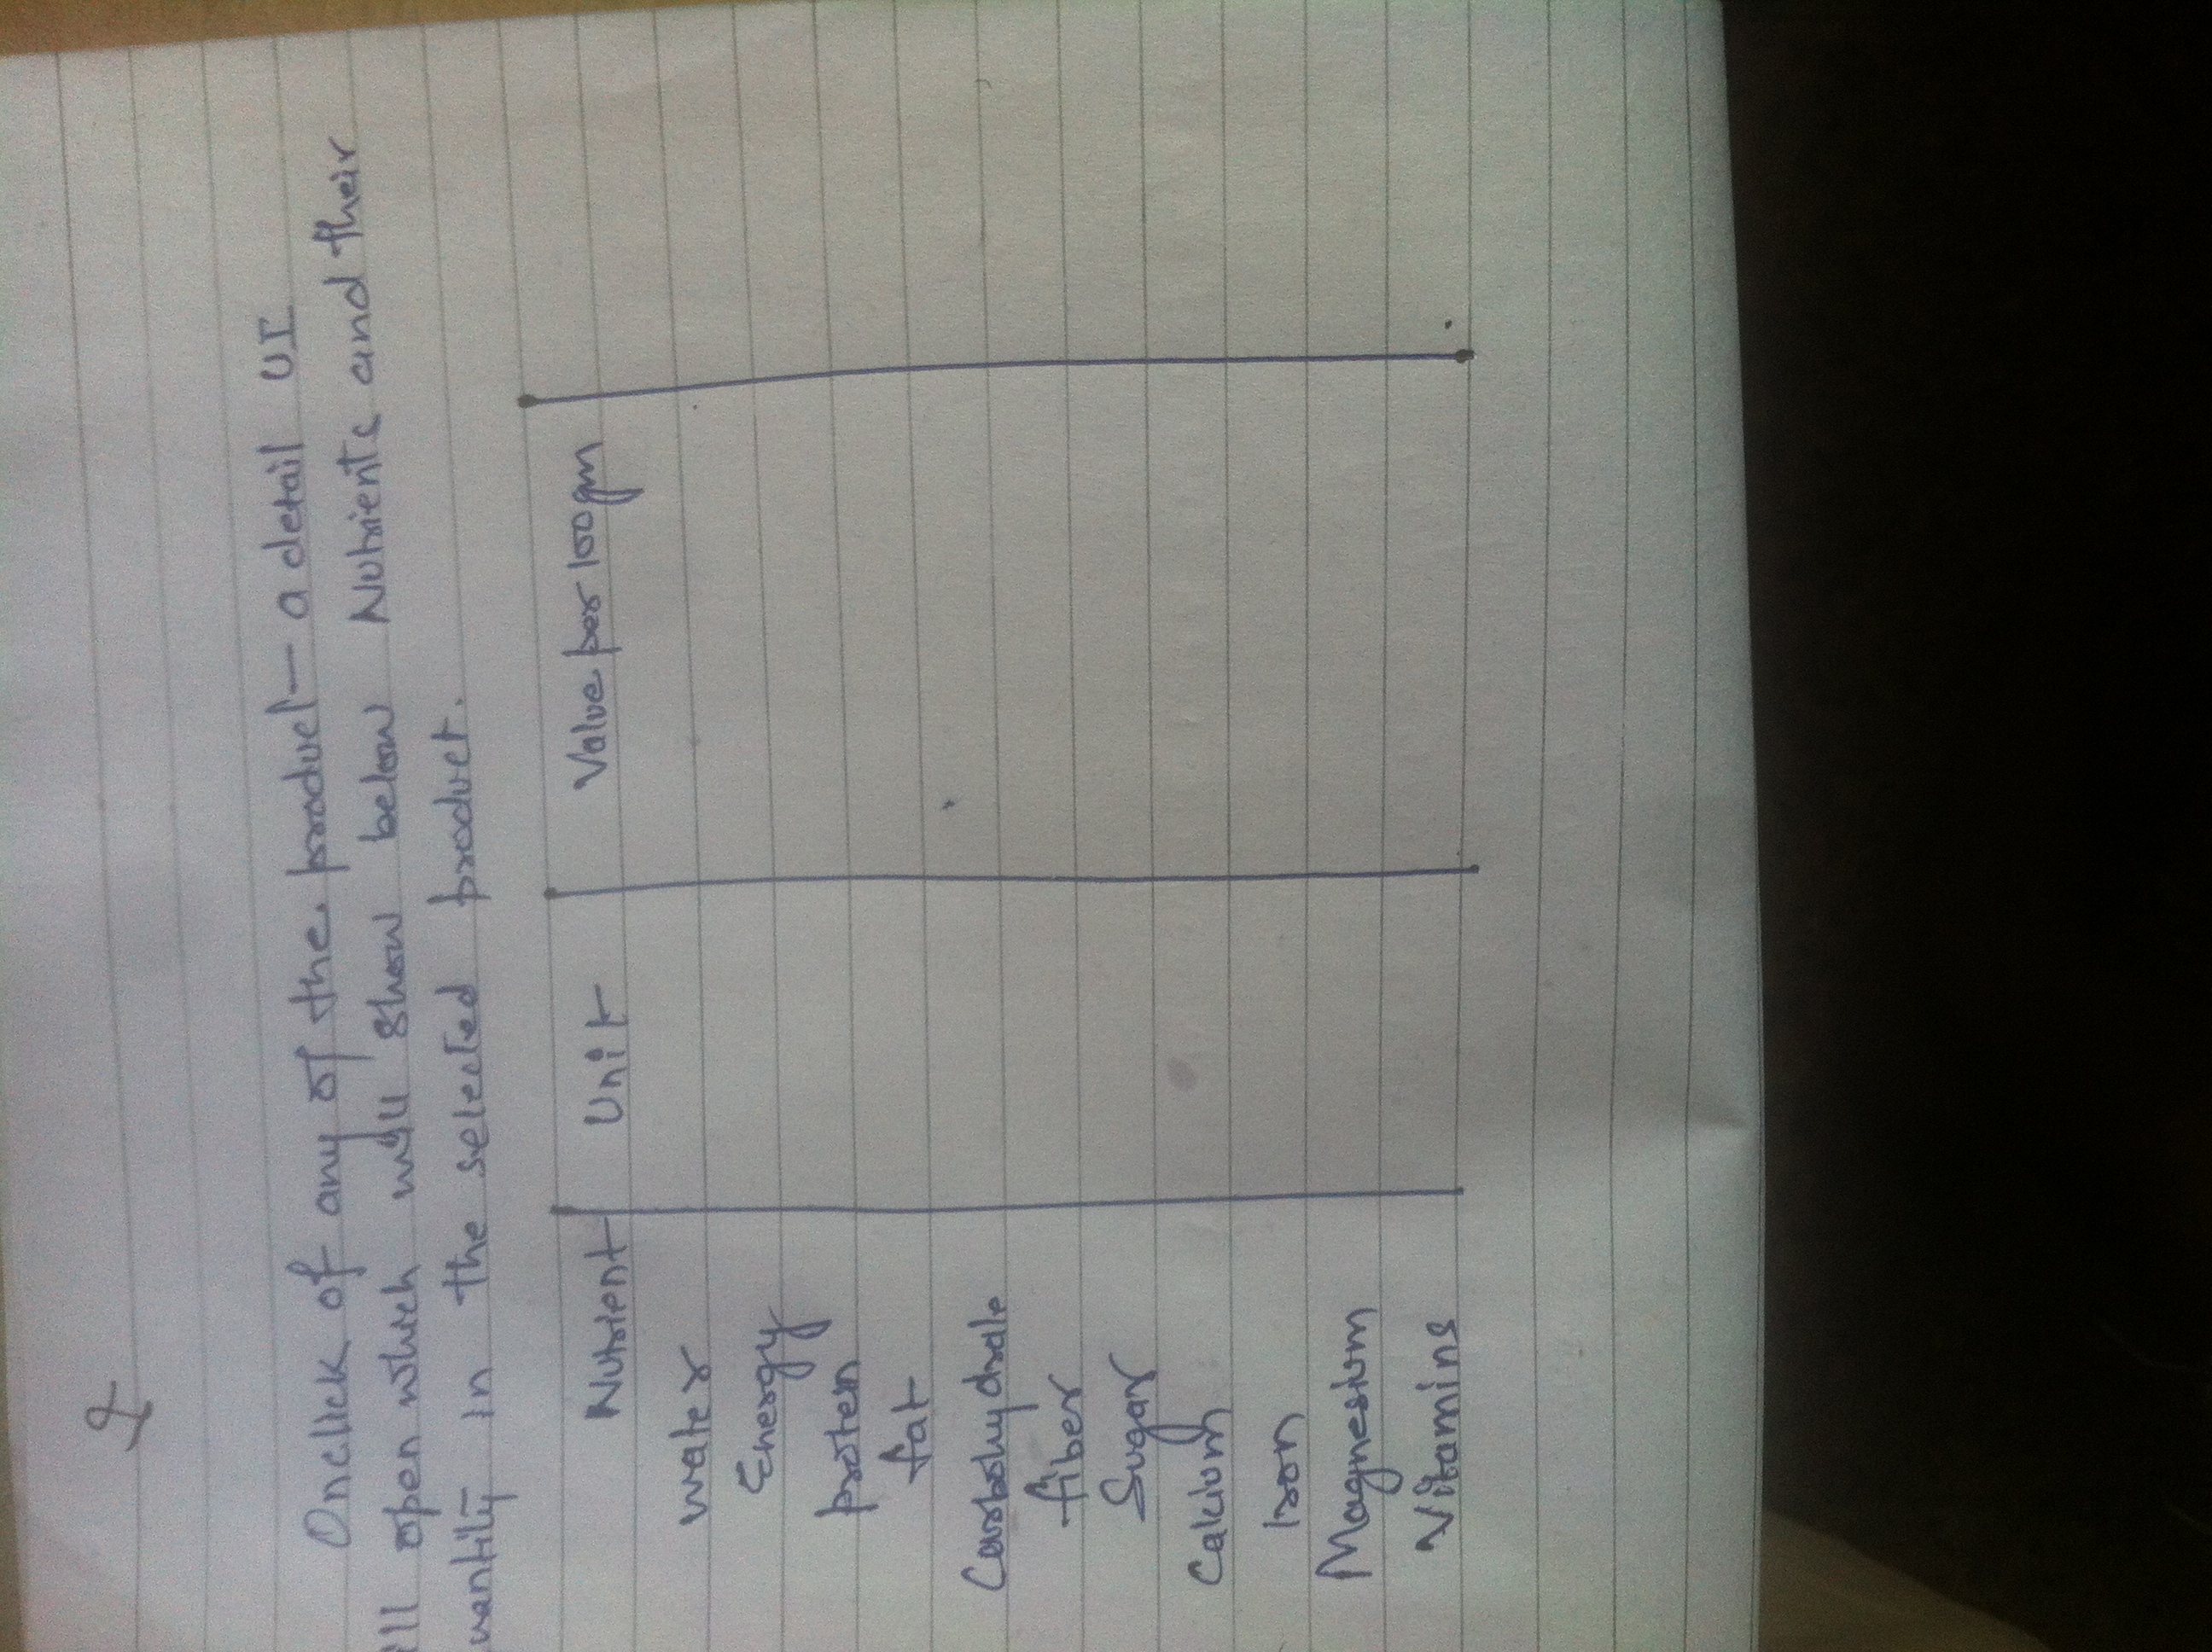 Onclick of any of the product a detail UI
ill open which will show below Nutrients and their
uantity in the selected product.
Nutrient Unit Value per 100gm
Water
Energy
Protein
fat
Carbohydrate
fiber
Sugar
Calcium
Iron
Magnesium
Vitamins